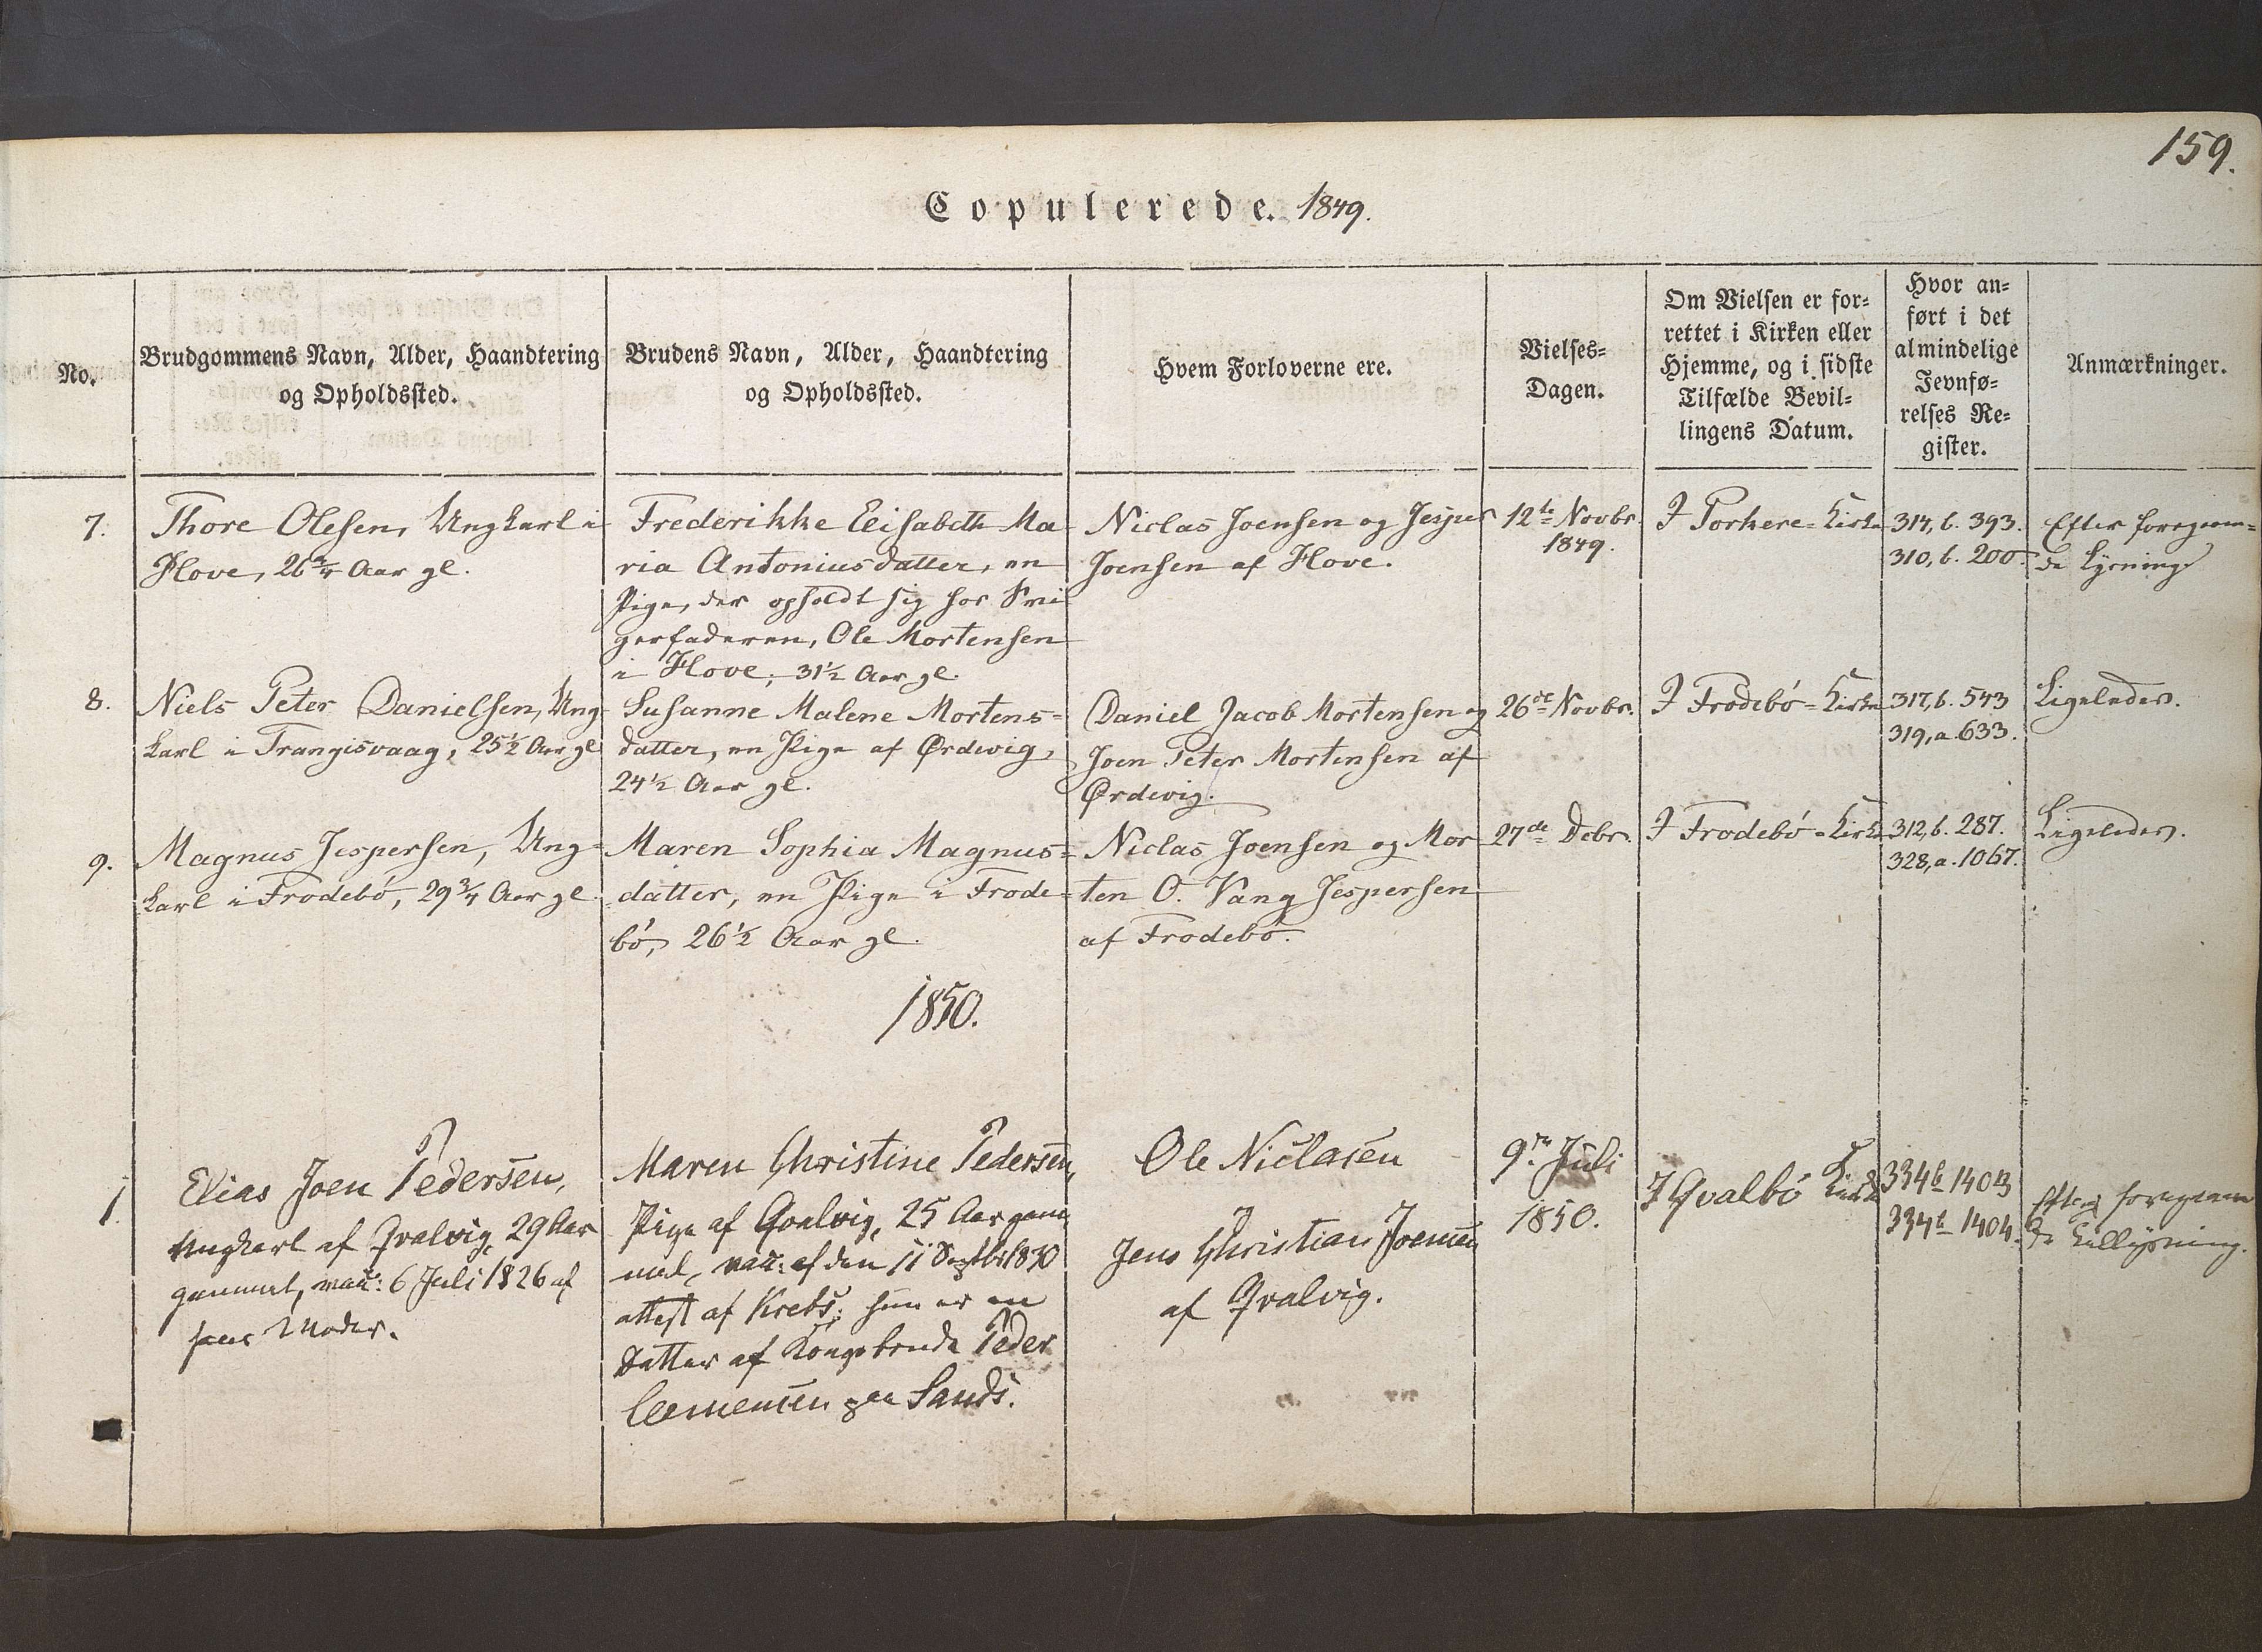 159.
Copulerede. 1849.
No.
Brudgommens Navn, Alder, Haandtering
og Opholdssted.
Brudens Navn, Alder, Haandtering
og Opholdssted.
Hvem Forloverne ere.
Vielses=
Dagen.
Om Vielsen er for=
rettet i Kirken eller
Hjemme, og i sidste
Tilfælde Bevil=
lingens Datum.
Hvor an=
ført i det
almindelige
Jevnfø=
relses Re=
gister.
Anmærkninger.
7.
Thore Olesen, Ungkarl i
Hove, 26¾ Aar gl.
Frederikke Elisabeth Ma
ria Antoniusdatter, en
Pige, der opholdt sig hos Svi
gerfaderen, Ole Mortensen
i Hove, 31½ Aar gl.
Niclas Joensen og Jesper
Joensen af Hove.
12te Novbr.
1849.
I Porkere=Kirke
314, b. 393.
310, b. 200.
Efter foregaaen=
de Lysning
8.
Niels Peter Danielsen, Ung
karl i Trangisvaag, 25½ Aar gl
Susanne Malene Mortens=
datter, en Pige af Ørdevig,
24½ Aar gl.
Daniel Jacob Mortensen og
Joen Peter Mortensen af
Ørdevig.
26de Novbr.
I Frodebó=Kirke
317, b. 543
319, a. 633.
Ligeledes.
9.
Magnus Jespersen, Ung=
karl i Frodebó, 29¾ Aar gl
Maren Sophia Magnus=
datter, en Pige i Frode=
bó, 26½ Aar gl.
Niclas Joensen og Mor
ten O. Vang Jespersen
af Frodebó.
27de Debr.
I Frodebó=Kirke
312, b. 287.
328, a. 1067.
Ligeledes.
1850.
1.
Elias Joen Pedersen,
Ungkarl af Qvalvig, 29 Aar
gammel, vacc: 6 Juli 1826 af
hans Moder.
Maren Christine Pedersen,
Pige af Qvalvig, 25 Aar gam
mel, vacc: af den 11 Septbr 1830
attest af Krebs; hun er en
Datter af Kongsbonde Peder
Clemensen paa Sands.
Ole Niclasen
Jens Christian Joensen
af Qvalvig.
9de Juli
1850.
I Qvalbó Kirke
334b 1403
334b 1404.
Efter foregaaen
de Tillysning.